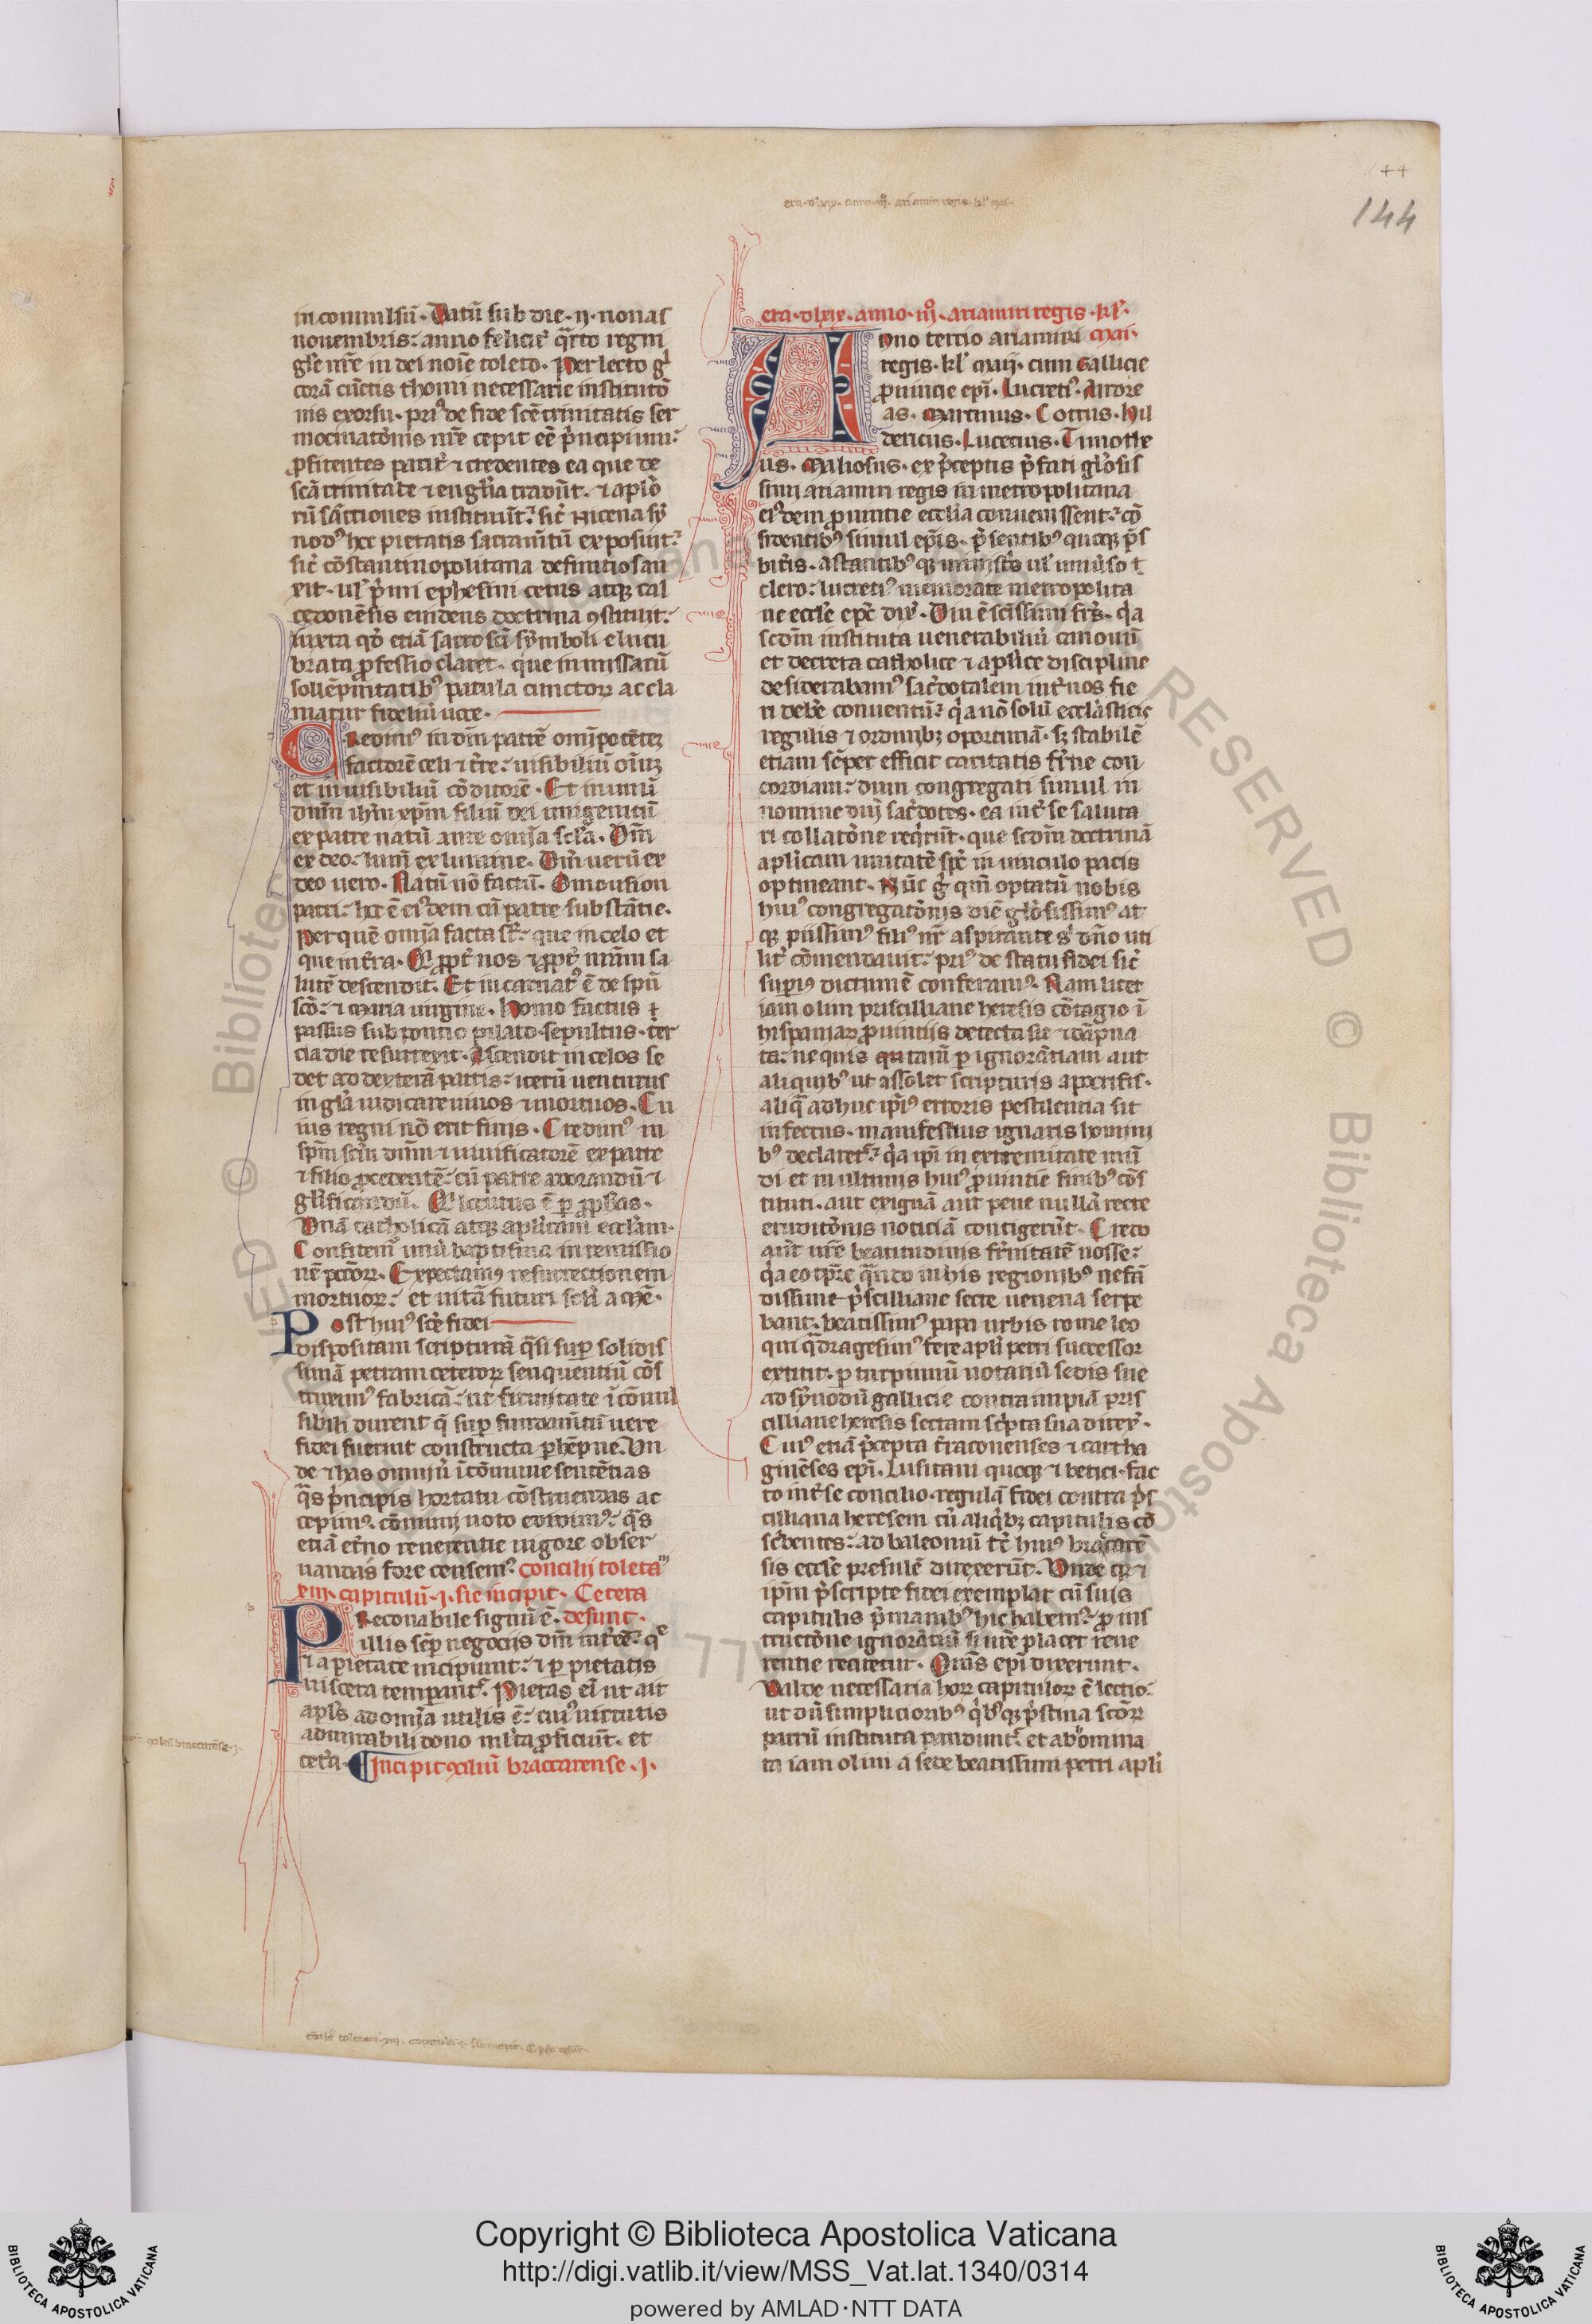 44
144
era · dlxix · anno · iijº · ariamiri regis · kl' mai ·
inconuulsu͞ · Datu͞ sub die · ij · nonas
nouembris: anno felicit͛ q͛rto regni
gl'e nr͞e in dei noi͞e toleto · Perlecto g͛
cora͞ cu͞ctis thomi necessarie instituto͞
nis exorsu · pri⁹ de fide sc͞e trinitatis ser
mocinato͞nis nr͞e cepit ee͞ p͛ncipium:
ꝓfitentes parit͛ ⁊ credentes ea que de
sc͞a trinitate ⁊ eug͞lia tradu͞t · ⁊ aplo͛
ru͞ sa͞ctiones instituu͞t: sic͛ nicena sy͛
nod⁹ hec pietatis sacram͞tu͞ exposuit:
sic͛ co͞stantinopolitana definitio san
xit · ul' p͛mi ephesini cetus atqꝫ cal
cedone͞sis eiusdeus doctrina ꝯstituit:
iuxta qd͛ etia͞ sacro sc͞i symboli elucu
brata ꝓfessio claret · que in missaru͞
solle͞pnitatib⁹ patula cunctoꝝ accla
matur fideliu͞ uoce ·
Credim⁹ in d͞m patre͞ omi͞pote͞te͞
factore͞ celi ⁊ t͛re: uisibiliu͞ oi͞uꝫ
et inuisibiliu͞ co͞ditore͞ · Et in unu͞
dn͞m ih͞m xp͞m filiu͞ dei unigenitu͞
ex patre natu͞ ante omi͞a sc͞la · D͞m
ex deo: lum͞ ex lumine · D͞m ueru͞ ex
deo uero · Natu͞ no͞ factu͞ · Omousion
patri: hec e͞ ei⁹dem cu͞ patre substa͞tie ·
Per que͞ omi͞a facta st͞: que in celo et
que in t͛ra · Q͛ ꝓpt͛ nos ⁊ ꝓpt͛ nr͞am sa
lute͞ descendit · Et incarnat⁹ e͞ de sp͞u
sc͞o: ⁊ maria uirgine · Homo factus ⁊
passus sub pontio pilato · sepultus · ter
cia die resurrexit · Ascendit in celos se
det ad dextera͞ patris: iteru͞ uenturus
in gl͞a iudicare uiuos ⁊ mortuos · Cu
ius regni no͞ erit finis · Credim⁹ in
sp͞m sc͞m dn͞m ⁊ uiuificatore͞ ex patre
⁊ filio ꝓcedente͞: cu͞ patre adorandu͞ ⁊
gl'ificandu͞ · Q͛ locutus e͞ ꝑ ꝓph͞as ·
Una͞ catholica͞ atqꝫ apl'icam eccl'am ·
Confitem⁹ unu͞ baptisma in remissio
ne͞ pc͞coꝝ · Expectam⁹ resurrectionem
mortuoꝝ: et uita͞ futuri sc͞li ame͞ ·
Post hui⁹ sc͞e fidei
dispositam scriptura͞ q͛si sup͛ solidis
sima͞ petram ceteroꝝ sequentiu͞ co͞s
truem⁹ fabrica͞: ut firmitate i͞conuul
sibili durent q͛ sup͛ fundam͞tu͞ uere
fidei fuerint constructa ꝑhe͞pne · Un
de ⁊ has omniu͞ i͞ co͞mune sente͞tias
q͛s p͛ncipis hortatu co͞struendas ac
cepim⁹ · co͞muni uoto edidim⁹: q͛s
etia͞ et͛no reuerentie uigore obser
uandas fore censem⁹ · concilij toleta
xiij · capitulu͞ · j · sic incipit · Cetera
Preconabile signu͞ e͞ · desunt ·
illis se͞p negocijs d͞m int͛ee͞: q͛
⁊ a pietate incipiunt: ⁊ ꝑ pietatis
uiscera temperant͛ · Pietas ei͞ ut ait
apl's ad omi͞a utilis e͞: cui⁹ uirtutis
admirabili dono ml'ta ꝓficiu͞t · et
cet͛a · Incipit ꝯciliu͞ braccarense · j ·
era · dlxix · anno · iijº · ariamiri regis · kl' ·
Anno tertio ariamiri mai ·
regis · kl' maij · cum gallicie
ꝓuincie epi͞ · Lucreti⁹ · Andre
as · Martinus · Cottus · Hil
dericus · Lucecius · Timothe
us · Maliosus · ex p͛ceptis p͛fati gl'osis
simi ariamiri regis in metropolitana
ei⁹dem ꝓuintie eccl'ia conuenissent: co͞
sidentib⁹ simul epi͞s · p͛sentib⁹ quoqꝫ p͛s
bit͛is · astantib⁹qꝫ minist͛s ul' uniu͛so
clero: lucreti⁹ memorate metropolita
ne eccl'e epc͞ dix͛ · Diu e͞ sc͞issimi fr͞s · q͛a
scd͞m instituta uenerabiliu͞ canonu͞
et decreta catholice ⁊ apl'ice discipline
desiderabam⁹ sac͛dotalem int͛ nos fie
ri deb͛e conuentu͞: q͛a no͞ solu͞ eccl'asticis
regulis ⁊ ordinibꝫ oportuna͞ · sꝫ stabile͞
etiam se͞per efficit caritatis fr͞ne con
cordiam: dum congregati simul in
nomine dn͞i sac͛dotes · ea int͛ se saluta
ri collato͞ne req͛ru͞t · que scd͞m doctrina͞
apl'icam unitate͞ sp͞c in uinculo pacis
optineant · Nu͞c g͛ qm͞ optatu͞ nobis
hui⁹ congregato͞nis die͞ gl'osissim⁹ at
qꝫ piissim⁹ fili⁹ nr͞ aspira͞te s͛ dn͞o uti
lit͛ co͞mendauit: pri⁹ de statu fidei sic͛
sup͛i⁹ dictum e͞ conferam⁹ · Nam licet
iam olim priscilliane heresis co͞tagio i͞
hispaniaꝝ ꝓuintijs detecta sit ⁊ da͞pna
ta: ne quis tam͞ ꝑ ignora͞tiam aut
aliquib⁹ ut assolet scripturis apocrifis ·
aliq͛ adhuc ip͞i⁹ erroris pestilentia sit
infectus · manifestius ignaris homini
b⁹ declaret͛: q͛a ipi͞ in extremitate mu͞
di et in ultimis hui⁹ ꝓuintie finib⁹ co͞s
tituti · aut exigua͞ aut pene nulla͞ recte
erudito͞nis noticia͞ contigeru͞t · Credo
au͞t ur͞e beatitudinis fr͞nitate͞ nosse:
q͛a eo tp͞re q͛ndo in his regionib⁹ nefa͞
dissime p͛scilliane secte uenena serpe
bant · beatissim⁹ papa urbis rome leo
qui q͛dragesim⁹ fere apl'i petri successor
extitit · ꝑ turpiniu͞ notariu͞ sedis sue
ad synodu͞ gallicie contra impia͞ pris
cilliane heresis sectam sc͛pta sua direx͛ ·
Cui⁹ etia͞ p͛cepta t͛raconenses ⁊ cartha
gine͞ses epi͞ · Lusitani quoqꝫ ⁊ betici · fac
to int͛ se concilio · regula͞ fidei contra p͛s
cilliana heresem cu͞ aliq͛bꝫ capitulis co͞
sc͛bentes: ad balconiu͞ tc͞ hui⁹ bracare͞
sis eccl'e presule͞ direxeru͞t · Unde qꝫ ⁊
ip͞m p͛scripte fidei exemplar cu͞ suis
capitulis p͛ manib⁹ hic habem⁹: ꝓ ins
tructo͞ne ignora͞tiu͞ si ur͞e placet reue
rentie recitetur · Om͞s epi͞ dixerunt ·
Valde necessaria hoꝝ capituloꝝ e͞ lectio:
ut du͞ simplicioribꝰ q͛b⁹qꝫ p͛stina sc͞oꝝ
patru͞ instituta pandunt͛ et abomina
ta iam olim a sede beatissimi petri apl'i
Copyright © Biblioteca Apostolica Vaticana
http://digi.vatlib.it/view/MSS_Vat.lat.1340/0314
powered by AMLAD·NTT DATA
BIBLIOTECA APOSTOLICA VATICANA
BIBLIOTECA APOSTOLICA VATICANA